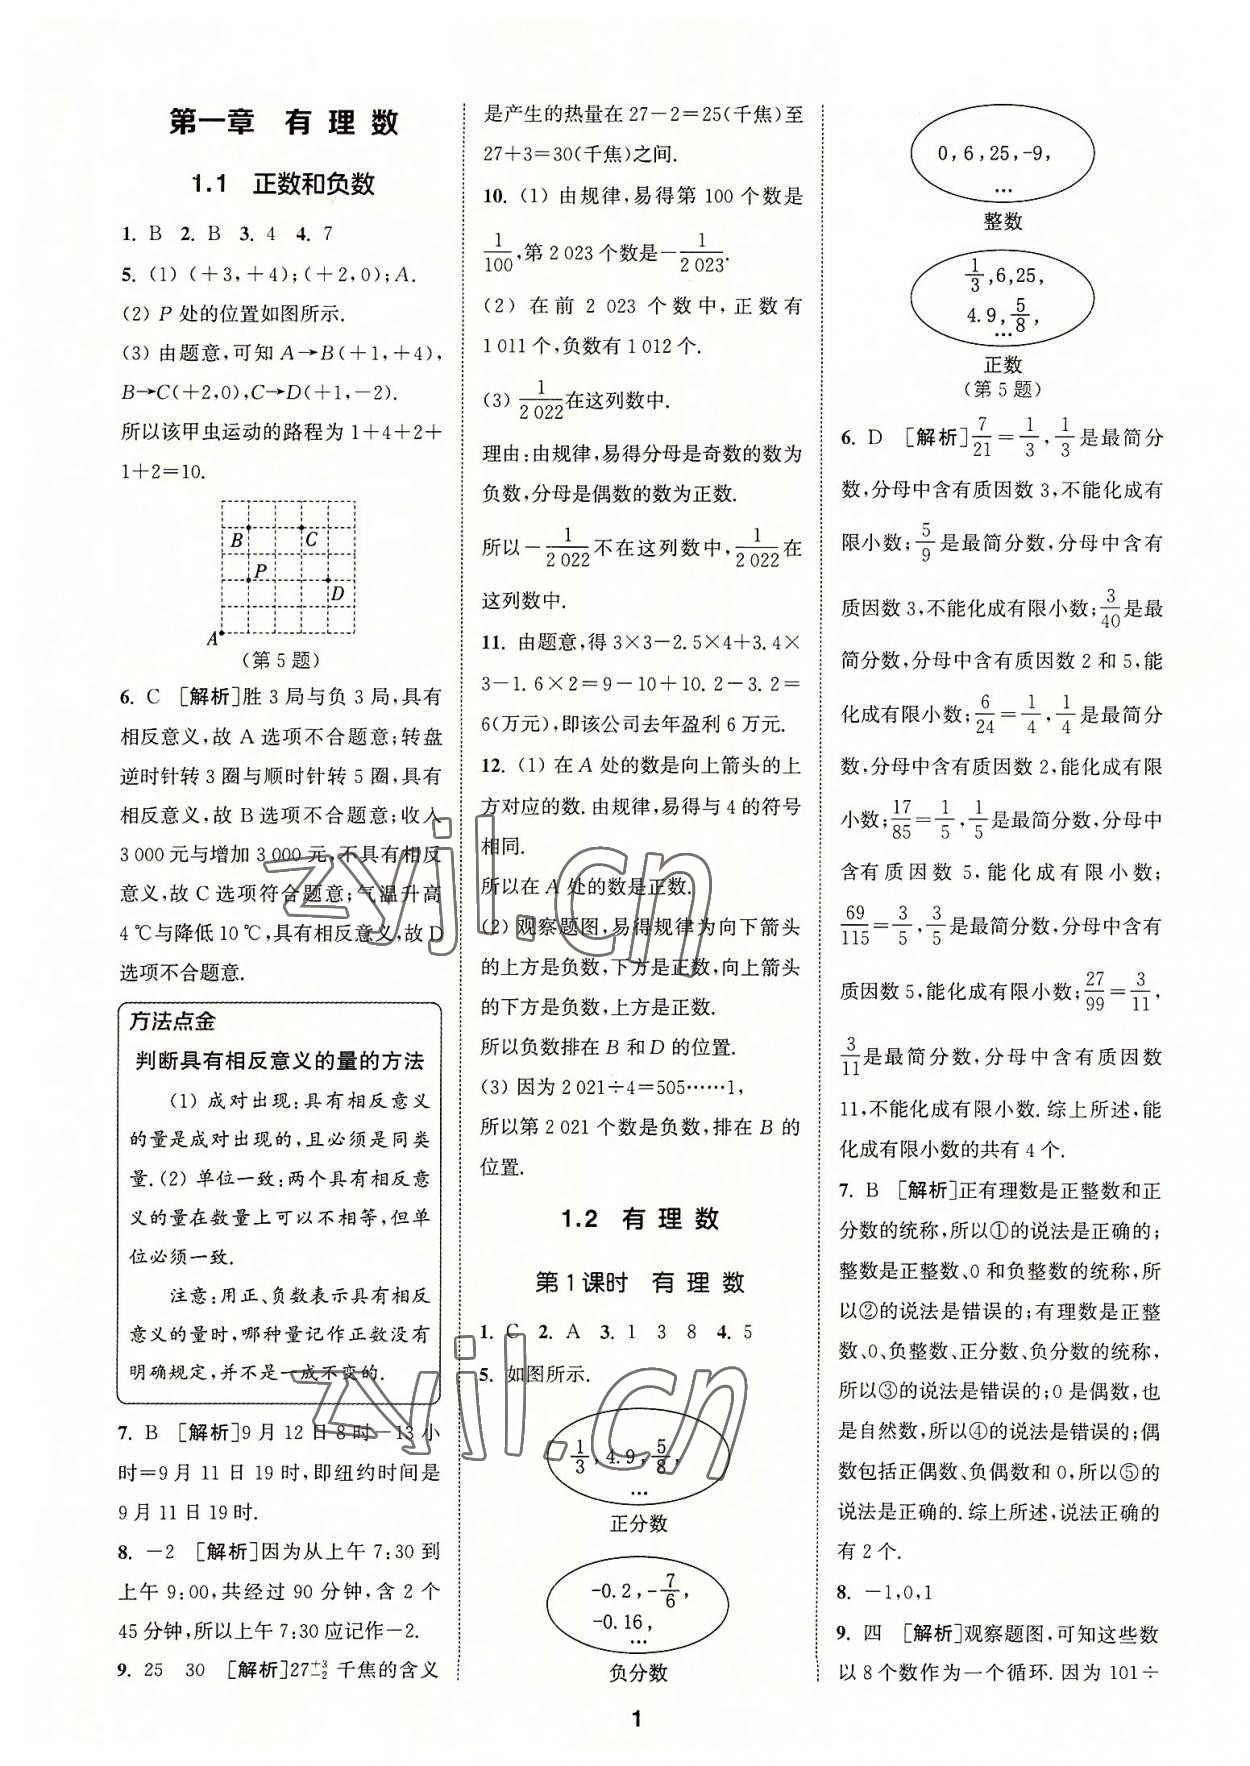 第一章　有 理 数
1.1　正数和负数
1. B　2. B　3. 4　4. 7
5. (1) (＋3,＋4);(＋2,0);A.
(2) P 处的位置如图所示.
(3) 由题意,可知 A→B(＋1,＋4),
B→C(＋2,0),C→D(＋1,－2).
所以该甲虫运动的路程为 1＋4＋2＋
1＋2＝10.
B　C
P
D
A
(第 5 题)
6. C　[解析]胜 3 局与负 3 局,具有
相反意义,故 A 选项不合题意;转盘
逆时针转 3 圈与顺时针转 5 圈,具有
相反意义,故 B 选项不合题意;收入
3 000 元与增加 3 000 元,不具有相反
意义,故 C 选项符合题意;气温升高
4 ℃与降低 10 ℃,具有相反意义,故 D
选项不合题意.
方法点金
判断具有相反意义的量的方法
(1) 成对出现:具有相反意义
的量是成对出现的,且必须是同类
量.(2) 单位一致:两个具有相反意
义的量在数量上可以不相等,但单
位必须一致.
注意:用正、负数表示具有相反
意义的量时,哪种量记作正数没有
明确规定,并不是一成不变的.
7. B　[解析]9 月 12 日 8 时－13 小
时＝9 月 11 日 19 时,即纽约时间是
9 月 11 日 19 时.
8. －2　[解析]因为从上午 7:30 到
上午 9:00,共经过 90 分钟,含 2 个
45 分钟,所以上午 7:30 应记作－2.
9. 25　30　[解析]27⁺³₋₂ 千焦的含义
是产生的热量在 27－2＝25(千焦)至
27＋3＝30(千焦)之间.
10. (1) 由规律,易得第 100 个数是
1/100,第 2 023 个数是－1/2 023.
(2) 在前 2 023 个数中,正数有
1 011 个,负数有 1 012 个.
(3) 1/2 022在这列数中.
理由:由规律,易得分母是奇数的数为
负数,分母是偶数的数为正数.
所以－1/2 022不在这列数中,1/2 022在
这列数中.
11. 由题意,得 3×3－2.5×4＋3.4×
3－1.6×2＝9－10＋10.2－3.2＝
6(万元),即该公司去年盈利 6 万元.
12. (1) 在 A 处的数是向上箭头的上
方对应的数.由规律,易得与 4 的符号
相同.
所以在 A 处的数是正数.
(2) 观察题图,易得规律为向下箭头
的上方是负数,下方是正数,向上箭头
的下方是负数,上方是正数.
所以负数排在 B 和 D 的位置.
(3) 因为 2 021÷4＝505……1,
所以第 2 021 个数是负数,排在 B 的
位置.
1.2　有 理 数
第 1 课时　有 理 数
1. C　2. A　3. 1　3　8　4. 5
5. 如图所示.
1/3,4.9,5/8,
…
正分数
-0.2,-7/6,
-0.16,
…
负分数
0,6,25,-9,
…
整数
1/3,6,25,
4.9,5/8,
…
正数
(第 5 题)
6. D　[解析]7/21＝1/3,1/3是最简分
数,分母中含有质因数 3,不能化成有
限小数;5/9是最简分数,分母中含有
质因数 3,不能化成有限小数;3/40是最
简分数,分母中含有质因数 2 和 5,能
化成有限小数;6/24＝1/4,1/4是最简分
数,分母中含有质因数 2,能化成有限
小数;17/85＝1/5,1/5是最简分数,分母中
含有质因数 5,能化成有限小数;
69/115＝3/5,3/5是最简分数,分母中含有
质因数 5,能化成有限小数;27/99＝3/11,
3/11是最简分数,分母中含有质因数
11,不能化成有限小数.综上所述,能
化成有限小数的共有 4 个.
7. B　[解析]正有理数是正整数和正
分数的统称,所以①的说法是正确的;
整数是正整数、0 和负整数的统称,所
以②的说法是错误的;有理数是正整
数、0、负整数、正分数、负分数的统称,
所以③的说法是错误的;0 是偶数,也
是自然数,所以④的说法是错误的;偶
数包括正偶数、负偶数和 0,所以⑤的
说法是正确的.综上所述,说法正确的
有 2 个.
8. －1,0,1
9. 四　[解析]观察题图,可知这些数
以 8 个数作为一个循环.因为 101÷
1
zyjl.cn
zyjl.cn